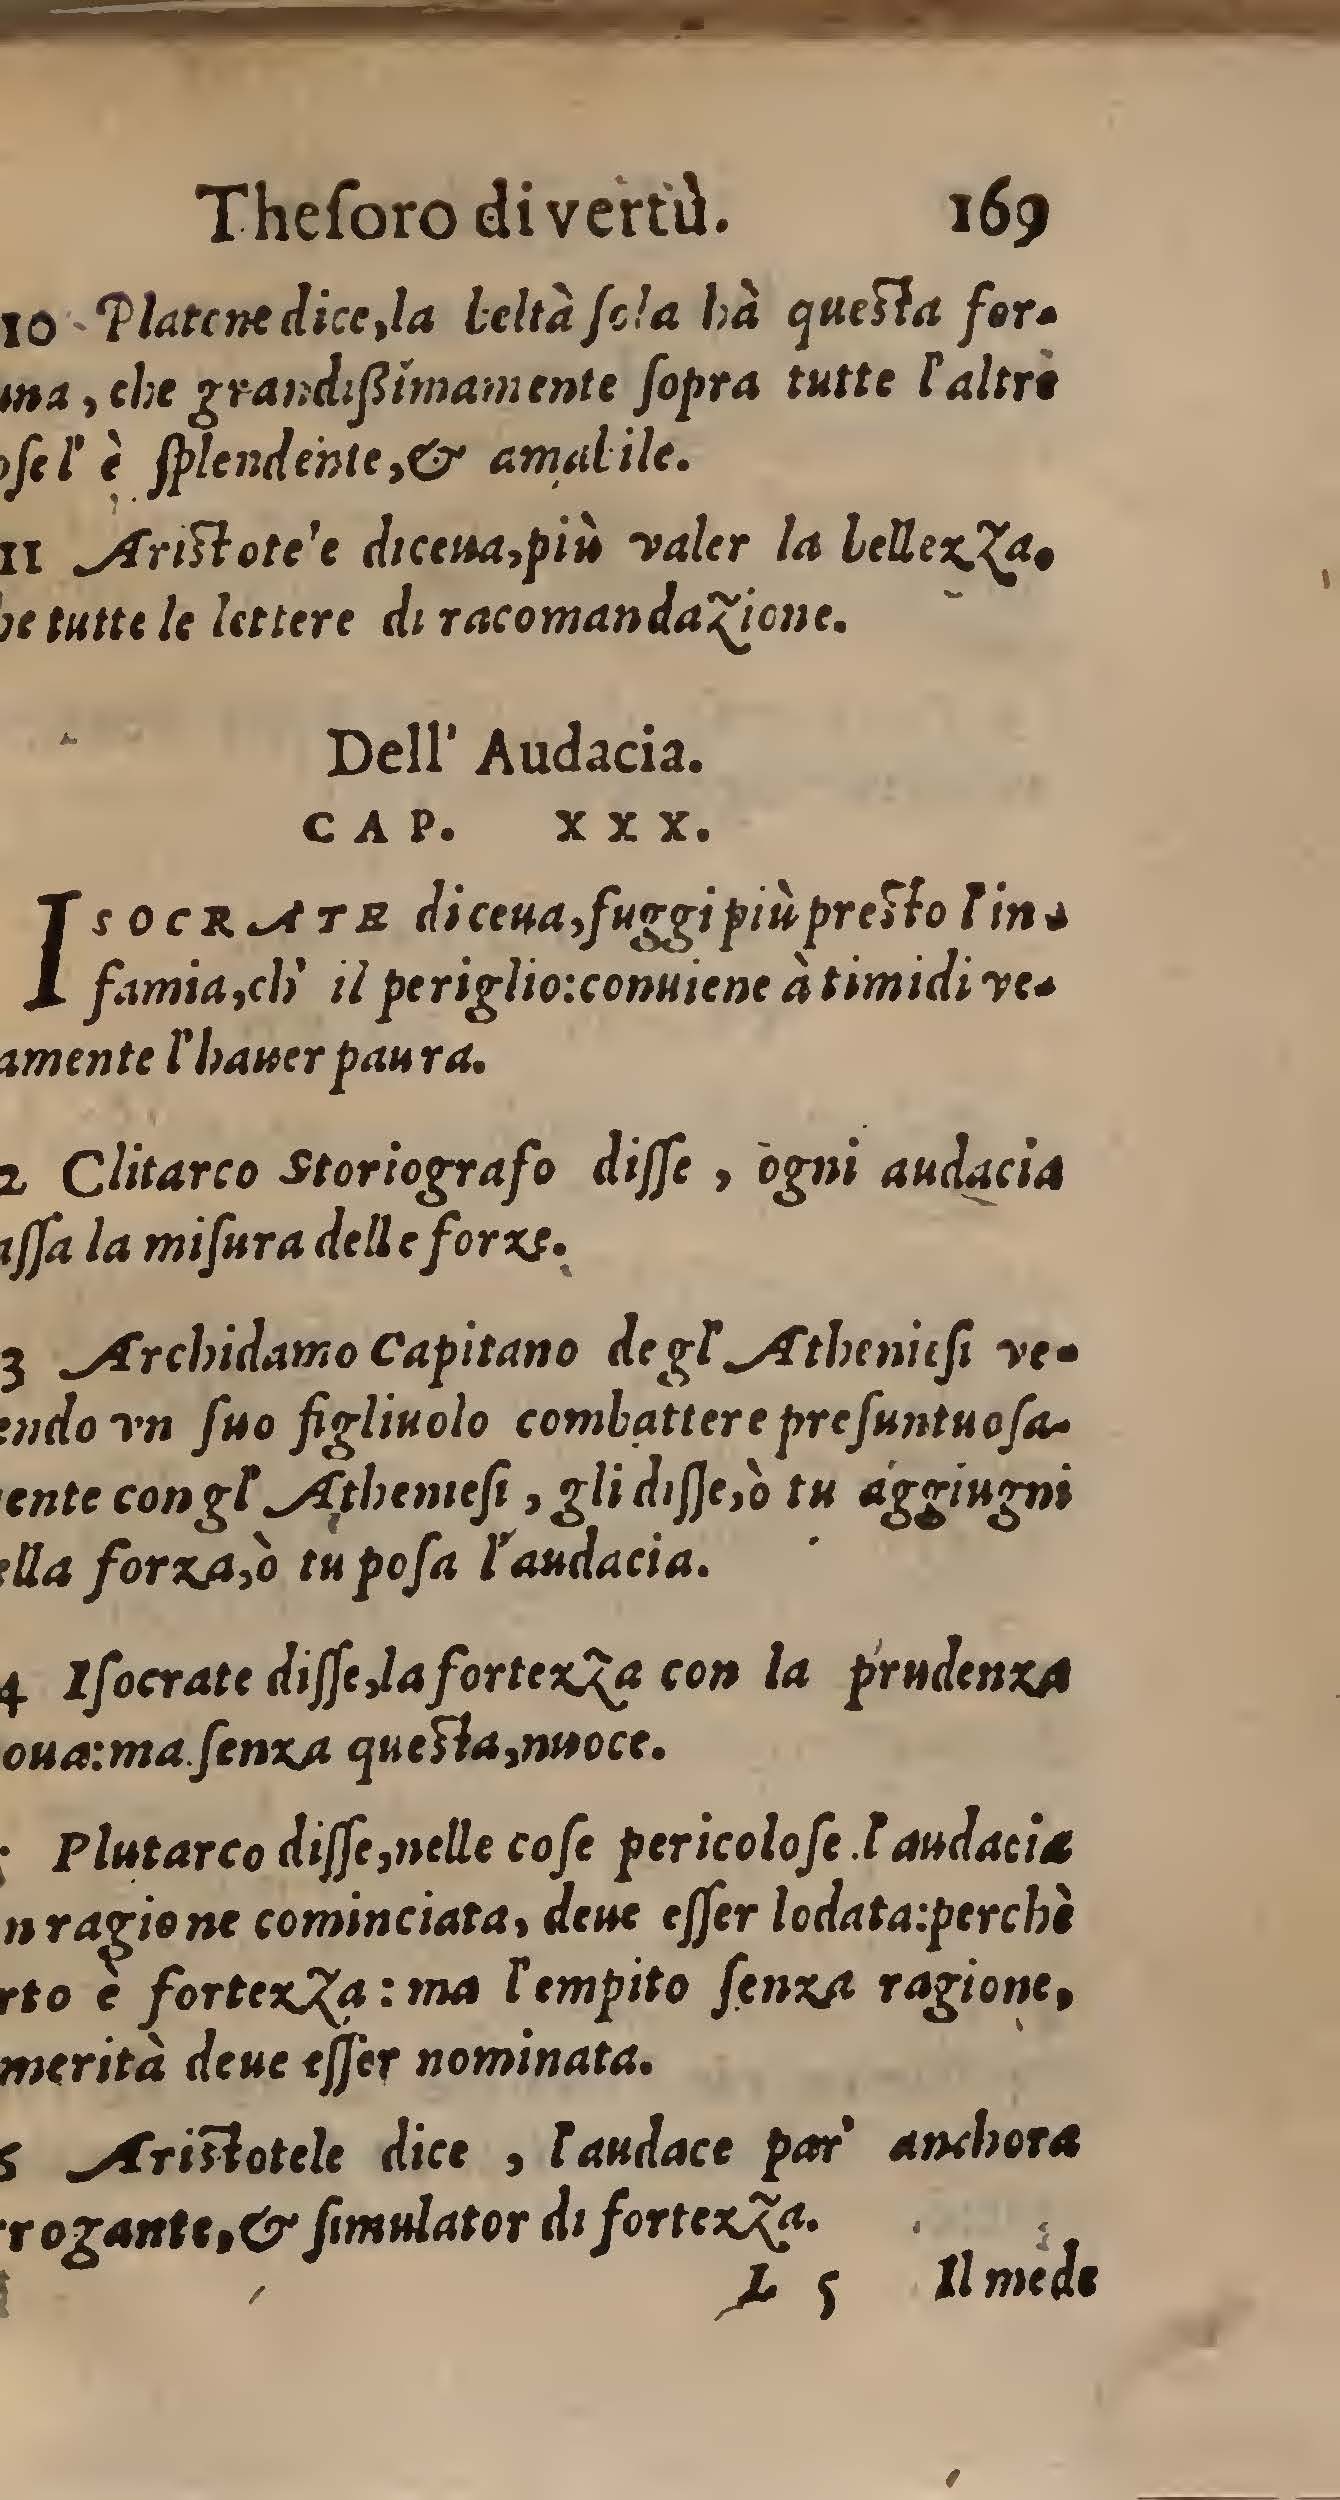 Theſoro di vertù. 169
10 Platone dice, la beltà ſola hà queſta for-
una, che grandißimamente ſopra tutte l'altre
oſe l' è ſplendente, & amabile.
11 Ariſtote'e diceua, più valer la bellezza.
he tutte le lettere di racomandazione.
Dell' Audacia.
CAP. XXX.
ISOCRATE diceua, fuggi più preſto l'in-
famia, ch' il periglio: conuiene à timidi ve-
amente l'hauer paura.
2 Clitarco Storiografo diſſe, ogni audacia
aſſa la miſura delle forze.
3 Archidamo Capitano degl' Athenieſi ve-
endo vn ſuo figliuolo combattere preſuntuoſa-
ente con gl' Athenieſi, gli diſſe, ò tu aggiugni
ella forza, ò tu poſa l'audacia.
4 Iſocrate diſſe, la fortezza con la prudenza
oua: ma ſenza queſta, nuoce.
Plutarco diſſe, nelle coſe pericoloſe l'audacia
n ragione cominciata, deue eſſer lodata: perchè
rto è fortezza: ma l'empito ſenza ragione,
merità deue eſſer nominata.
6 Ariſtotele dice, l'audace par' anchora
rogante, & ſimulator di fortezza.
L 5 Il mede